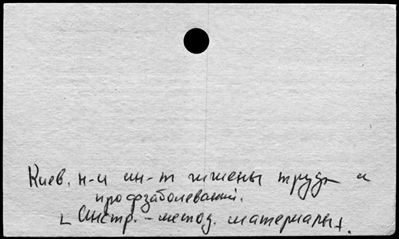 Киев. н-и ин-т гигиены труда и
профзаболеваний.
Инстр.-метод. материалы.